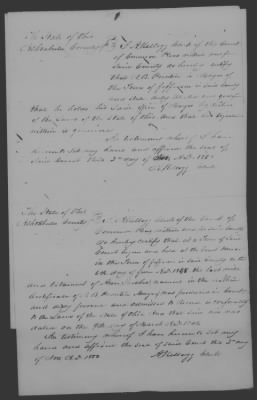 The State of Ohio
Ashtabula County SS I A Kellogg Clerk of the Court
of Common Pleas within and for
said County do hereby certify
that A B is Mayor of
the Town of Jefferson in said County
and State
that he holds his said office of Mayor by virtue
of the Laws of the State of Ohio. And that his signature
within is genuine.
In testimony whereof I have
hereunto set my hand and affixed the seal of
said Court this 3d day of A.D. 185
A Kellogg Clerk
The State of Ohio
Ashtabula County SS I A Kellogg Clerk of the Court of
Common Pleas within and for said County
do hereby certify that at a Term of said
Court begun and held at the Court House
in the Town of Jefferson in said County on the
day of A.D. the last will
and testament of named in the within
Certificate of A B Mayor was produced in Court
and duly proven and admitted to Record in conformity
to the Laws of the State of Ohio. And that said will was
dated on the 9th day of March A.D.
In testimony whereof I have hereunto set my
hand and affixed the seal of said Court this 3d day
of Nov A.D.
A Kellogg Clerk